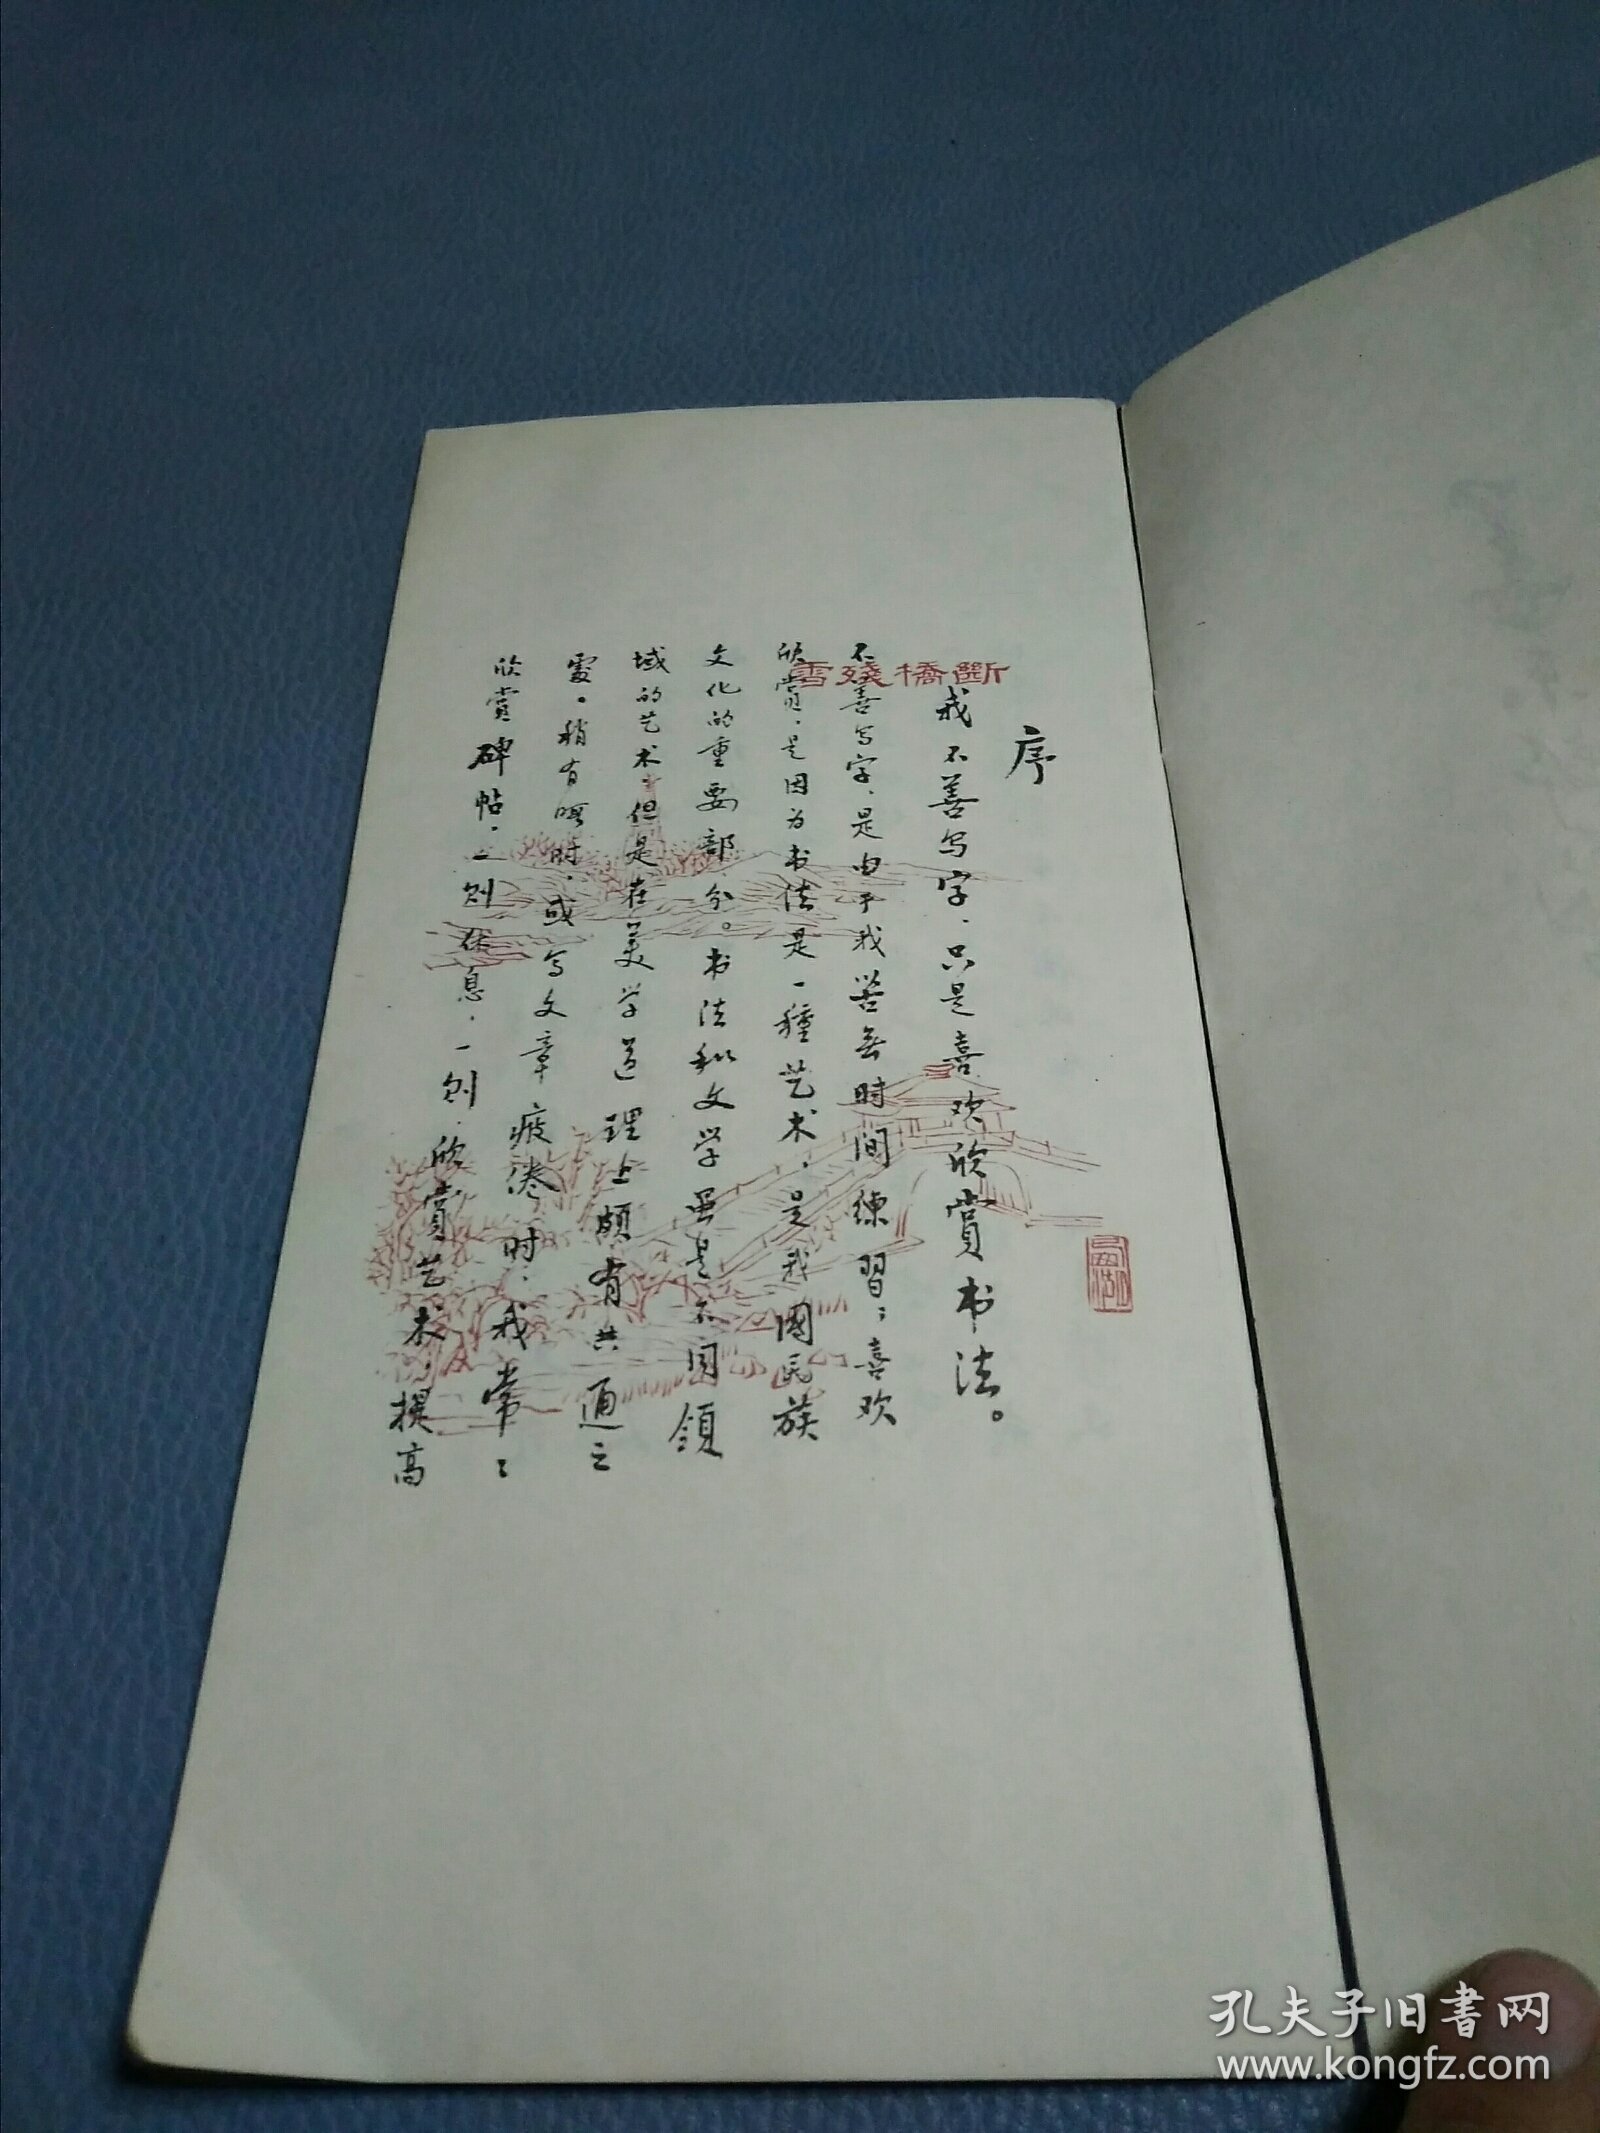 序
我不善写字，只是喜欢欣赏书法。
不善写字，是由于我苦無时间練習；喜欢
欣賞，是因为书法是一種艺术，是我國民族
文化的重要部分。书法和文学虽是不同領
域的艺术，但是在美学道理上頗有共通之
處。稍有暇时，或写文章疲倦时，我常〻
欣賞碑帖，一則休息，一則欣賞艺术，提高
斷橋殘雪
孔夫子旧書网
www.kongfz.com